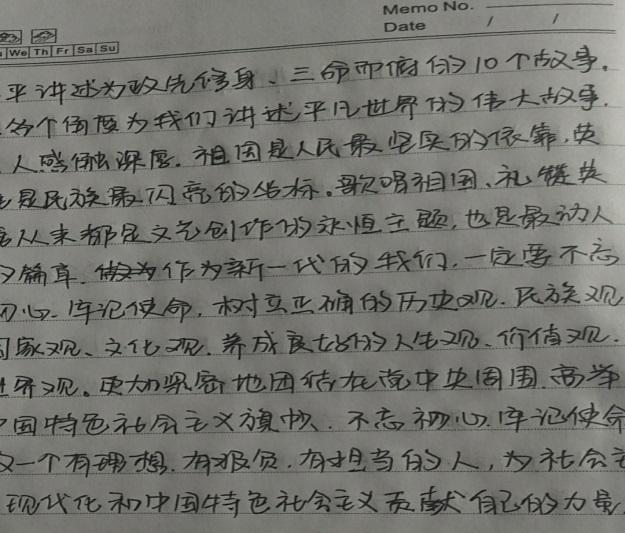 Memo No.
Date / /
We Th Fr Sa Su
平讲述为政先修身、三命而俯的10个故事.
个角度为我们讲述平凡世界的伟大故事.
人感触深厚.祖国是人民最坚实的依靠,英
是民族最闪亮的坐标.歌唱祖国、礼赞英
从来都是文艺创作的永恒主题,也是最动人
篇章.作为新一代的我们,一定要不忘
初心.牢记使命,树立正确的历史观.民族观
国家观、文化观.养成良好的人生观、价值观.
世界观。更加紧密地团结在党中央周围.高举
中国特色社会主义旗帜、不忘初心.牢记使命
做一个有理想.有抱负.有担当的人,为社会主
现代化和中国特色社会主义贡献自己的力量